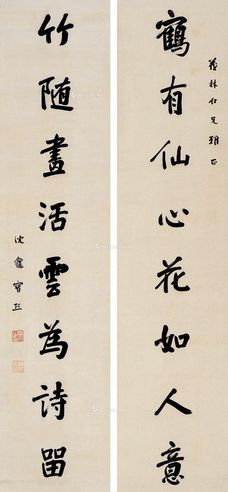 茂林仁兄雅正
鶴有仙心花如人意
竹随畫活雲為詩留
沈盦寶熙